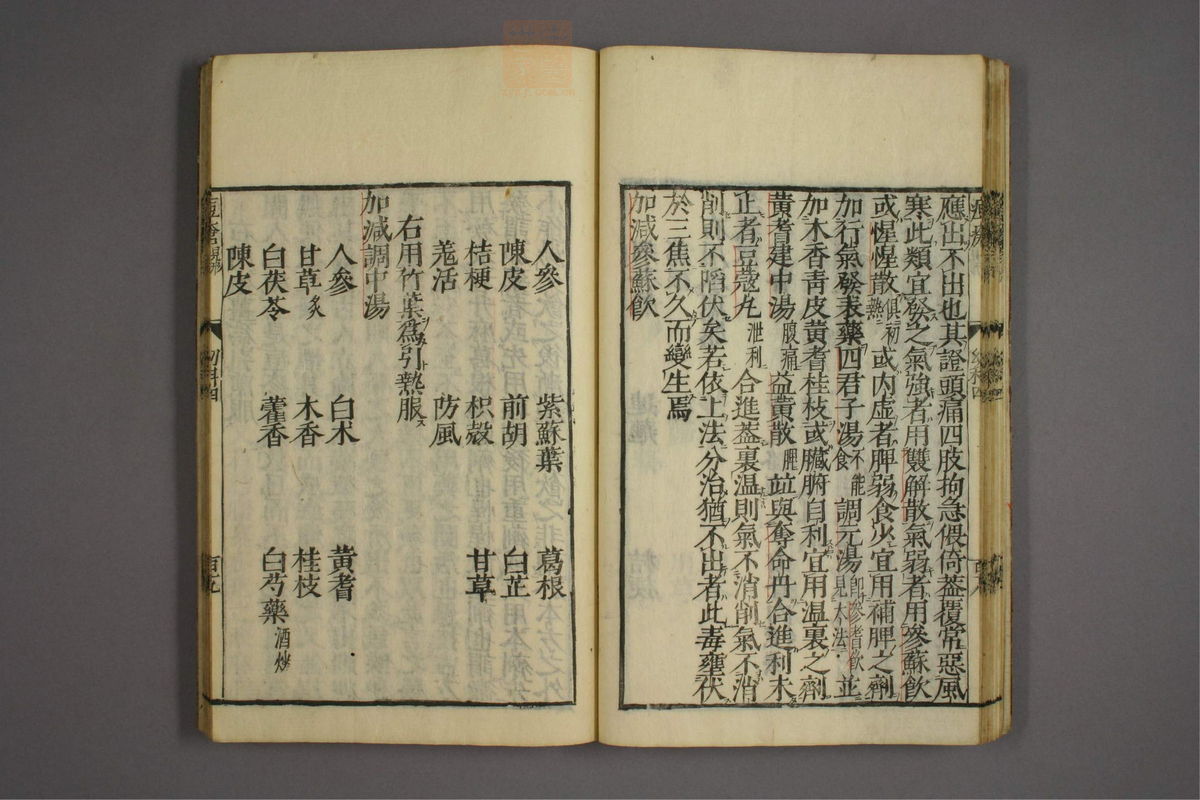 應出不出也其證頭痛四肢拘急偎倚蓋覆常惡風
寒此類宜發之氣強者用雙解散氣弱者用參蘇飲
或惺惺散俱初熱或內虛者脾弱食少宜用補脾之劑
加行氣發表藥四君子湯不能食調元湯即參耆飲見本法並
加木香青皮黃耆桂枝或臟腑自利宜用温裏之劑
黃耆建中湯腹痛益黃散並與奪命丹合進利木
正者豆蔻丸泄利合進蓋裏温則氣不消削氣不消
削則不陷伏矣若依上法分治猶不出者此毒壅伏
於三焦不久而變生焉
加減參蘇飲
人參 紫蘇葉 葛根
陳皮 前胡 白芷
桔梗 枳殼 甘草
羗活 防風
右用竹葉為引熱服
加減調中湯
人參 白朮 黃耆
甘草炙 木香 桂枝
白茯苓 藿香 白芍藥酒炒
陳皮